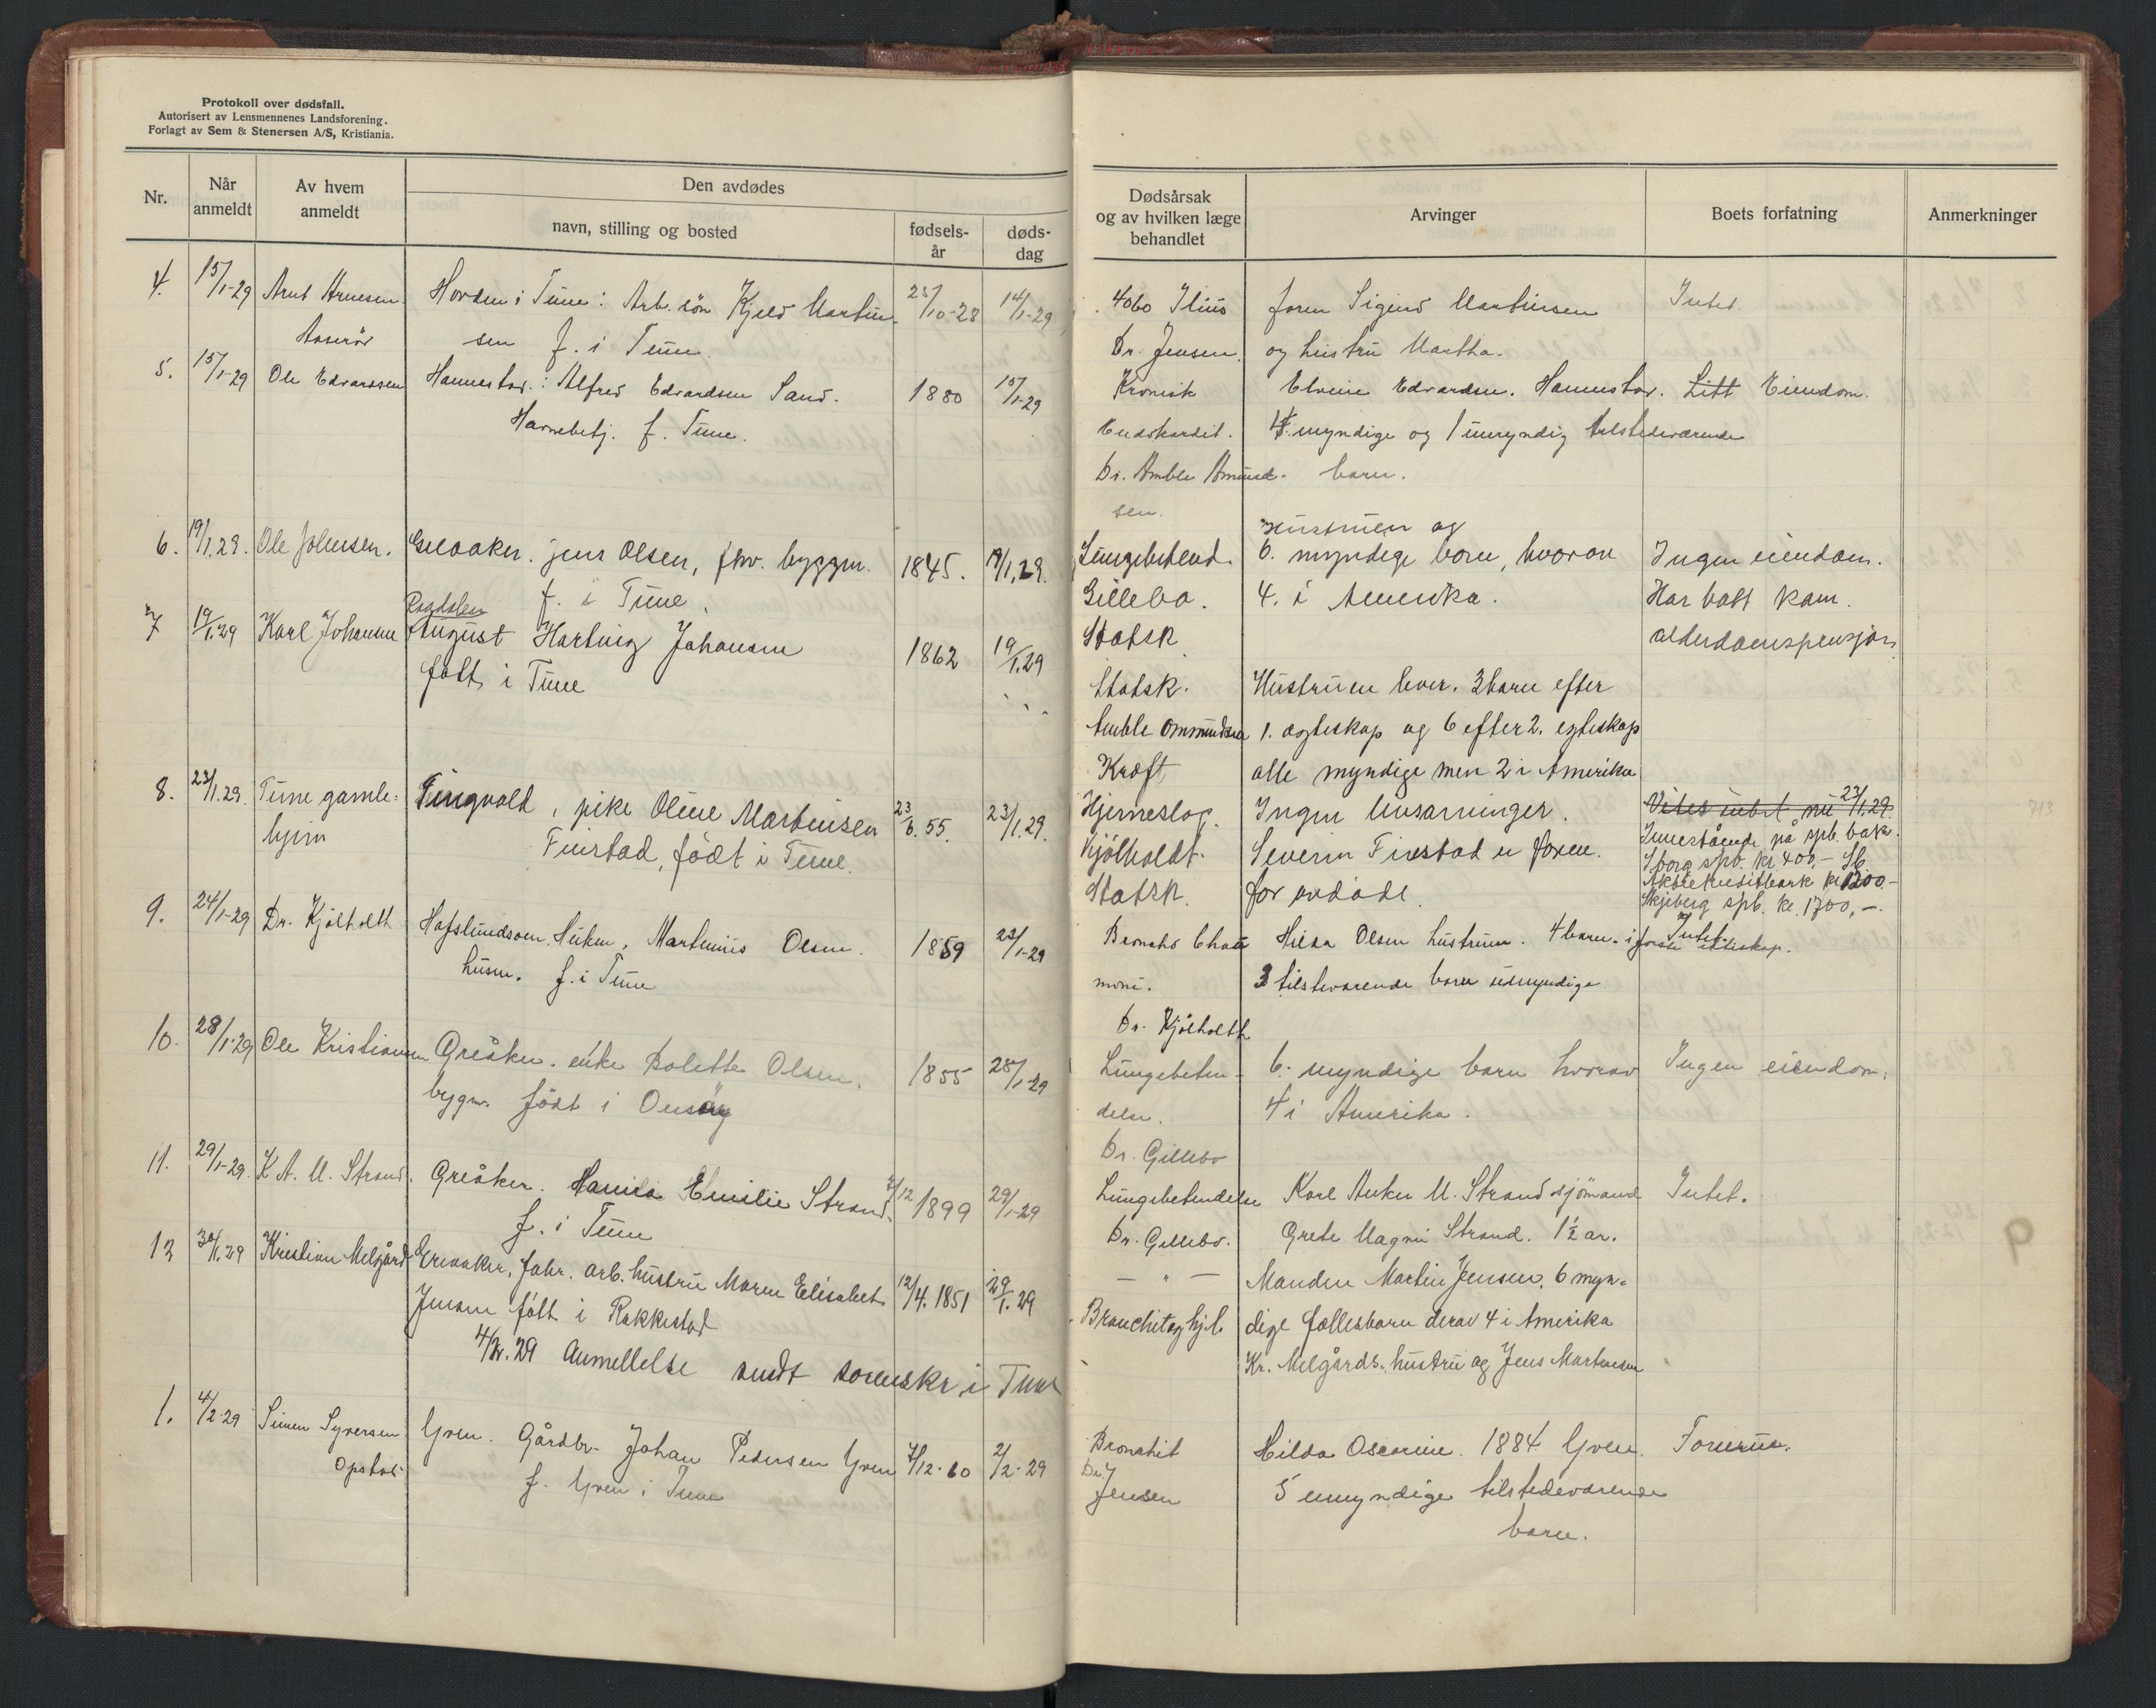 Protokoll over dødsfall.
Autorisert av Lensmennenes Landsforening.
Forlagt av Sem & Stenersen A/S, Kristiania.
Nr.
Når anmeldt
Av hvem anmeldt
Den avdødes
navn, stilling og bosted
fødsels-år
døds-dag
4. 15/1-29 Arnt Arnesen Horden i Tune: Arb. søn Kjeld Martin- 25/10-28 14/1-29
sen f. i Tune.
5. 15/1-29 Ole Edvardsen Hannestad: Alfred Edvardsen Sand. 1880 15/1-29
Havnebetj. f. Tune.
6. 19/1.29. Ole Johnsen. Greaaker. Jens Olsen, fhv. byggm. 1845. 19/1.29.
f. i Tune.
7 19/1.29 Karl Johansen August Hartvig Johansen 1862 19/1.29
født i Tune
8. 23/1.29. Tune gamle- Tingvold, pike Oline Martinsen 23/6.55. 23/1.29.
hjem Finstad, født i Tune.
9. 24/1-29 Dr. Kjølholt Hafslundsøen, Huken, Martinius Olsen. 1859 23/1-29
husm. f. i Tune
10. 28/1-29 Ole Kristiansen Greåker. enke Bolette Olsen. 1855 28/1-29
bygm. født i Onsøy
11. 29/1-29. K A. M. Strand. Greåker. Hanna Emilie Strand. 7/12 1899 29/1-29
f. i Tune
12 30/1.29 Kristian Melgård Greaaker, fabr. arb. hustru Maren Elisabet 12/4.1851 29/1.29
Jensen født i Rakkestad
4/2.29 Anmeldelse sendt sorenskr. i Tune
1. 4/2-29 Simen Syversen Yven. Gårdbr. Johan Pedersen Yven 7/12-60 2/2-29
Opstad f. Yven i Tune
Dødsårsak og av hvilken læge behandlet
Arvinger
Boets forfatning
Anmerkninger
Ilius foren Sigurd Martinsen Intet.
Dr. Jensen. og hustru Martha.
Kronisk Edvardsen. Hannestad. Litt Eiendom.
Endokardit. 4 myndige og 1 umyndig tilstedeværende
Dr. Amble Amund- barn.
sen.
Hustruen og
Lungebetend. 6. myndige barn, hvorav Ingen eiendom.
Gillebo. 4. i Amerika. Har hatt kom.
Statsk. alderdomspensjon
Statsk. Hustruen lever. 3 barn efter
Amble Ommundsen 1. ægteskap og 6 efter 2. egteskap
Kræft alle myndige men 2 i Amerika
Hjerneslag. Ingen livsarvinger. Vites intet nu 23/1.29.
Kjölholdt. Severin Finstad er foren. Innestående på spb. bok.
Statsk. for avdöde. Sborg spb. kr. 400,- Sb.
Aktiekreditbank kr 1200.-
Skjeberg spb. kr. 1700,-.
Hilda Olsen hustruen. 4 barn. i første ekteskap. Intet.
3 tilstevarende barn umyndige
Dr. Kjølholth
Lungebeten- 6. myndige barn hvorav Ingen eiendom.
delse. 4 i Amerika.
Dr. Gillebo
Lungebetendelse Karl Anker M. Strand sjömand Intet.
Dr. Gillebo. Grete Magni Strand. 1½ ar.
— " — Manden Martin Jensen. 6 myn-
dige fællesbarn derav 4 i Amerika
Kr. Melgårds hustru og Jens Martinsen
Bronchit Hilda Oscarine. 1884 Yven. Formue.
Dr. Jensen 5 umyndige tilstedeværende
barn.